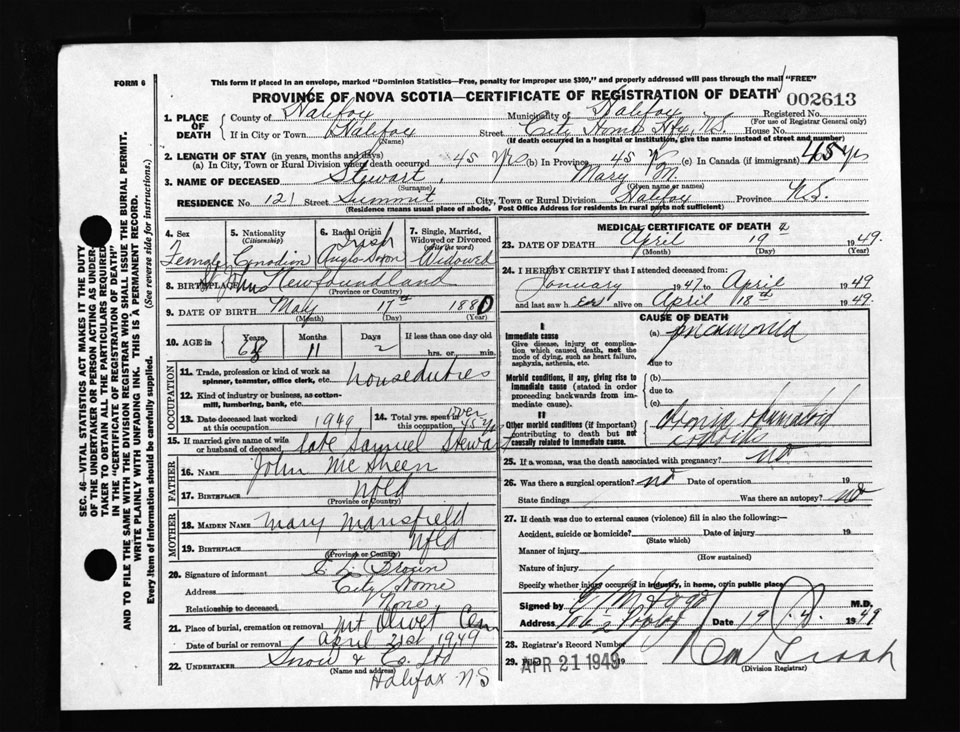 FORM 6
This form if placed in an envelope, marked "Dominion Statistics—Free, penalty for improper use $300," and properly addressed will pass through the mail "FREE"
PROVINCE OF NOVA SCOTIA—CERTIFICATE OF REGISTRATION OF DEATH 002613
1. PLACE OF DEATH
County of Halifax Municipality of Halifax Registered No.
(For use of Registrar General only)
If in City or Town Halifax Street City Home Hfx, N.S. House No.
(Name) (If death occurred in a hospital or institution, give the name instead of street and number)
2. LENGTH OF STAY (in years, months and days)
(a) In City, Town or Rural Division where death occurred 45 yrs (b) In Province 45 (c) In Canada (if immigrant) 45 yrs
3. NAME OF DECEASED Stewart, Mary M
(Surname) (Given name or names)
RESIDENCE No. 121 Street Summit City, Town or Rural Division Halifax Province N.S.
(Residence means usual place of abode. Post Office Address for residents in rural parts not sufficient)
4. Sex Female
5. Nationality (Citizenship) Canadian
6. Racial Origin Irish Anglo-Saxon
7. Single, Married, Widowed or Divorced (write the word) Widowed
8. BIRTHPLACE St Johns Newfoundland
(Province or Country)
9. DATE OF BIRTH May 17th 1880
(Month) (Day) (Year)
10. AGE in Years 68 Months 11 Days 2 If less than one day old
hrs. or min.
OCCUPATION
11. Trade, profession or kind of work as spinner, teamster, office clerk, etc. houseduties
12. Kind of industry or business, as cotton-mill, lumbering, bank, etc.
13. Date deceased last worked at this occupation 1949
14. Total yrs. spent in this occupation over 45 yrs
15. If married give name of wife or husband of deceased late Samuel Stewart
FATHER
16. Name John McSheen
17. Birthplace Nfld
(Province or Country)
MOTHER
18. MAIDEN NAME Mary Mansfield
19. BIRTHPLACE Nfld
(Province or Country)
20. Signature of informant Brown
Address City Home
Relationship to deceased None
21. Place of burial, cremation or removal Mt Olivet Cem
Date of burial or removal April 21st 1949
22. UNDERTAKER Snow & Co. Ltd
(Name and address)
Halifax NS
MEDICAL CERTIFICATE OF DEATH
23. DATE OF DEATH April 19th 1949.
(Month) (Day)
24. I HEREBY CERTIFY that I attended deceased from:
January 1947 to April 1949
and last saw her alive on April 18th 1949.
CAUSE OF DEATH
I
Immediate cause
Give disease, injury or complication which caused death, not the mode of dying, such as heart failure, asphyxia, asthenia, etc.
(a) pneumonia
due to
Morbid conditions, if any, giving rise to immediate cause (stated in order proceeding backwards from immediate cause).
(b)
due to
(c)
II
Other morbid conditions (if important) contributing to death but not causally related to immediate cause.
chronic rheumatoid
arthritis
25. If a woman, was the death associated with pregnancy? no
26. Was there a surgical operation? no Date of operation 19
State findings Was there an autopsy? no
27. If death was due to external causes (violence) fill in also the following:—
Accident, suicide or homicide? Date of injury 19
(State which)
Manner of injury
(How sustained)
Nature of injury
Specify whether injury occurred in industry, in home, or in public place
Signed by M.D.
Address Date 19 4 1949
28. Registrar's Record Number
29. Filed APR 21 1949 19
(Division Registrar)
SEC. 46—VITAL STATISTICS ACT MAKES IT THE DUTY
OF THE UNDERTAKER OR PERSON ACTING AS UNDER-
TAKER TO OBTAIN ALL THE PARTICULARS REQUIRED
IN THE "CERTIFICATE OF REGISTRATION OF DEATH"
AND TO FILE THE SAME WITH THE DIVISION REGISTRAR WHO SHALL ISSUE THE BURIAL PERMIT.
WRITE PLAINLY WITH UNFADING INK. THIS IS A PERMANENT RECORD.
Every item of information should be carefully supplied. (See reverse side for instructions.)